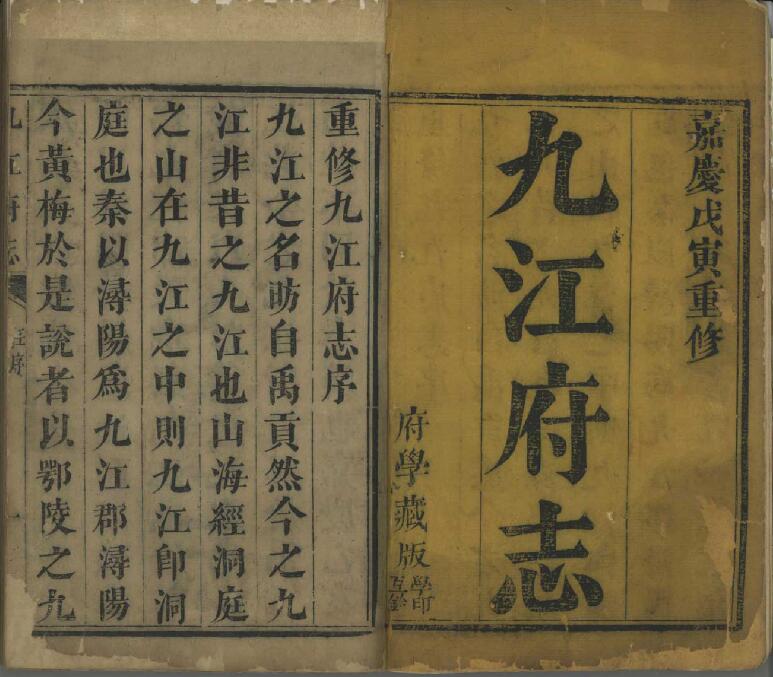 嘉慶戊寅重修
九江府志
府學藏版
重修九江府志序
九江之名昉自禹貢然今之九
江非昔之九江也山海經洞庭
之山在九江之中則九江卽洞
庭也秦以潯陽爲九江郡潯陽
今黃梅於是說者以鄂陵之九
九江府志